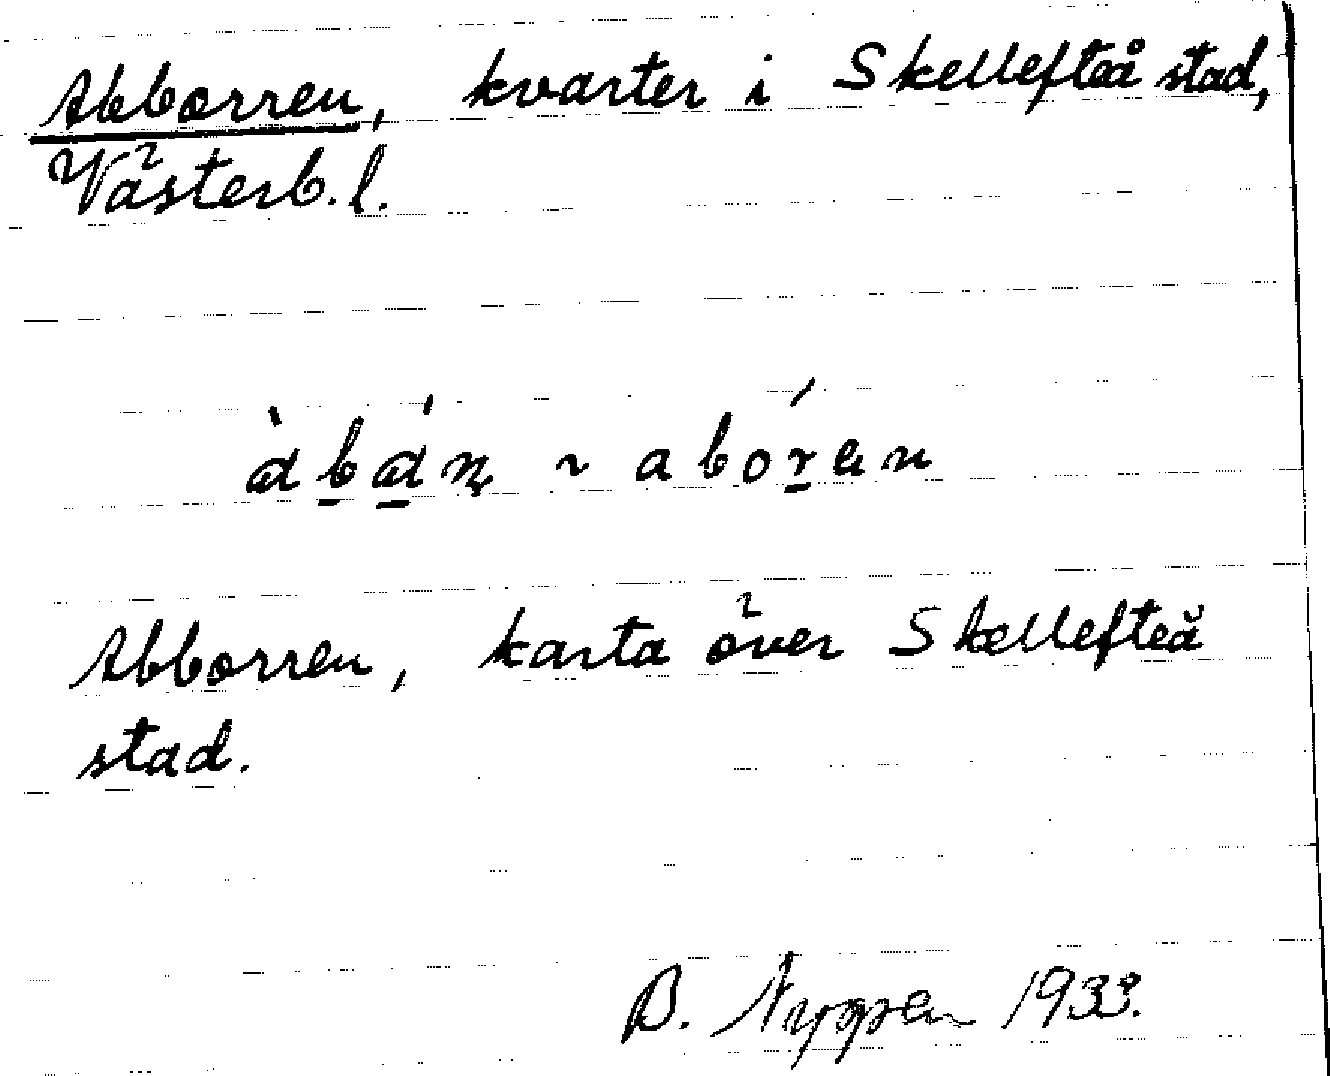 Abborren, kvarter i Skellefteå stad,
Västerb. l.
àb̲á̲n̥ ~ abór̲en
Abborren, karta över Skellefteå
stad.
B. 193